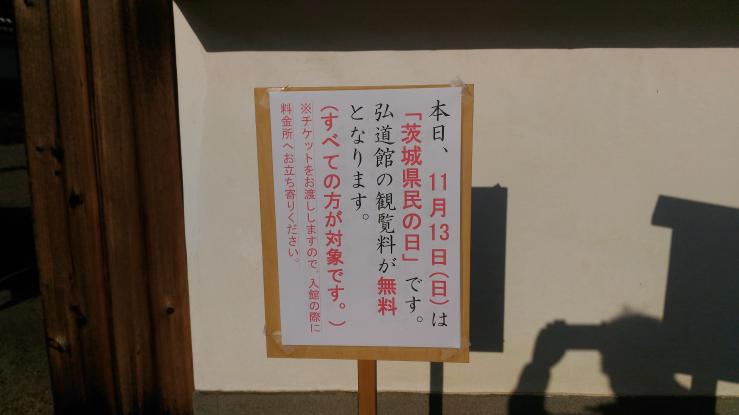 本日、11月13日(日)は
「茨城県民の日」です。
弘道館の観覧料が無料
となります。
(すべての方が対象です。)
※チケットをお渡ししますので、入館の際に
料金所へお立ち寄りください。